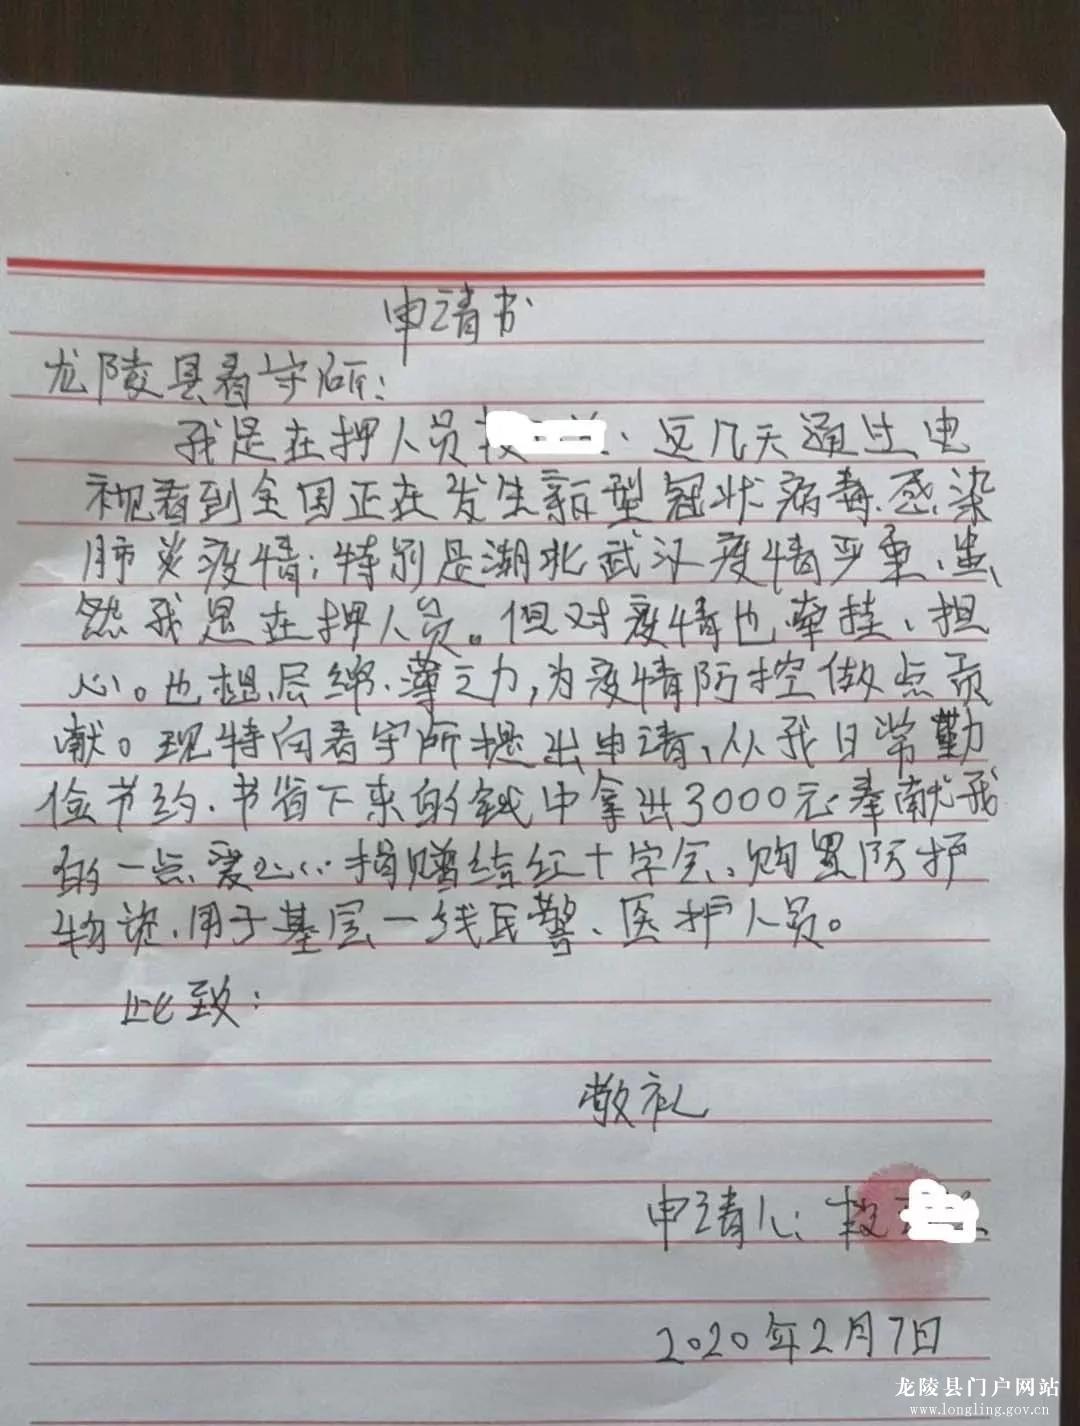 申请书
龙陵县看守所：
我是在押人员 ：这几天通过电
视看到全国正在发生新型冠状病毒感染
肺炎疫情；特别是湖北武汉疫情严重、虽
然我是在押人员。但对疫情也牵挂、担
心。也想尽绵薄之力，为疫情防控做点贡
献。现特向看守所提出申请、从我日常勤
俭节约、节省下来的钱中拿出3000元奉献我
的一点爱心捐赠给红十字会、购置防护
物资、用于基层一线民警、医护人员。
此致：
敬礼
申请人：
2020年2月7日
龙陵县门户网站
www.longling.gov.cn